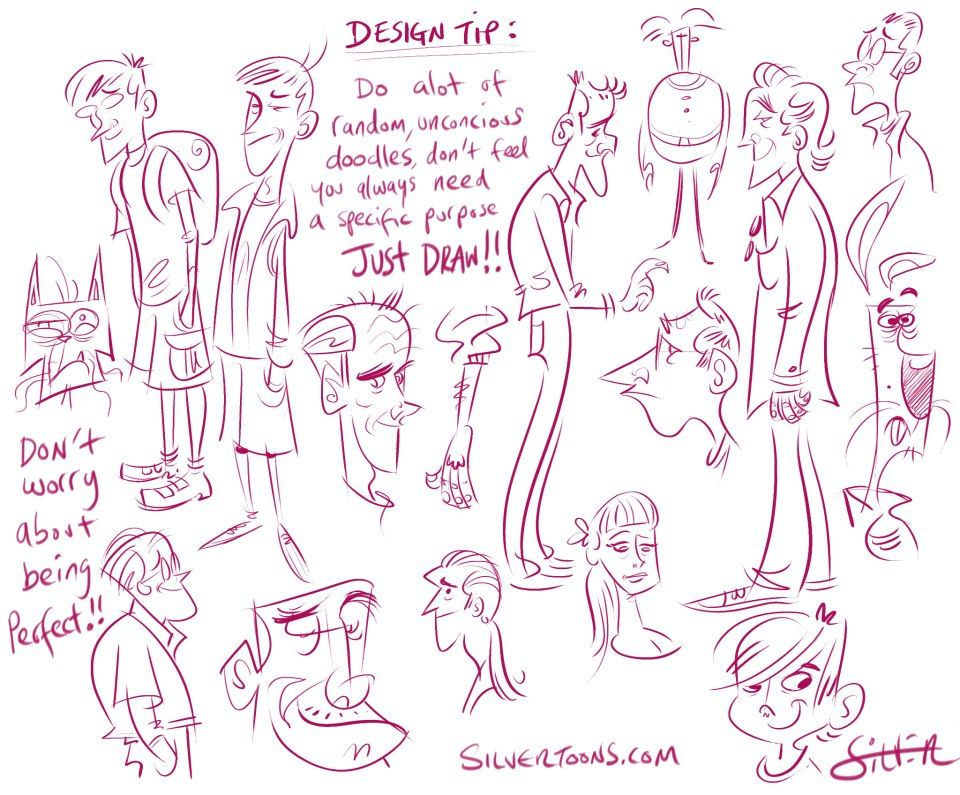 DESIGN TIP:
Do alot of
random, unconcious
doodles, don't feel
you always need
a specific purpose
JUST DRAW!!
DON'T
worry
about
being
Perfect!!
SILVERTOONS.COM